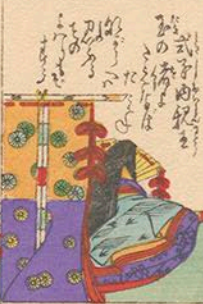 式子内親王
玉の緒よ
たえなは
たえね
なからへは
忍ふる
ことの
よはりもそ
する